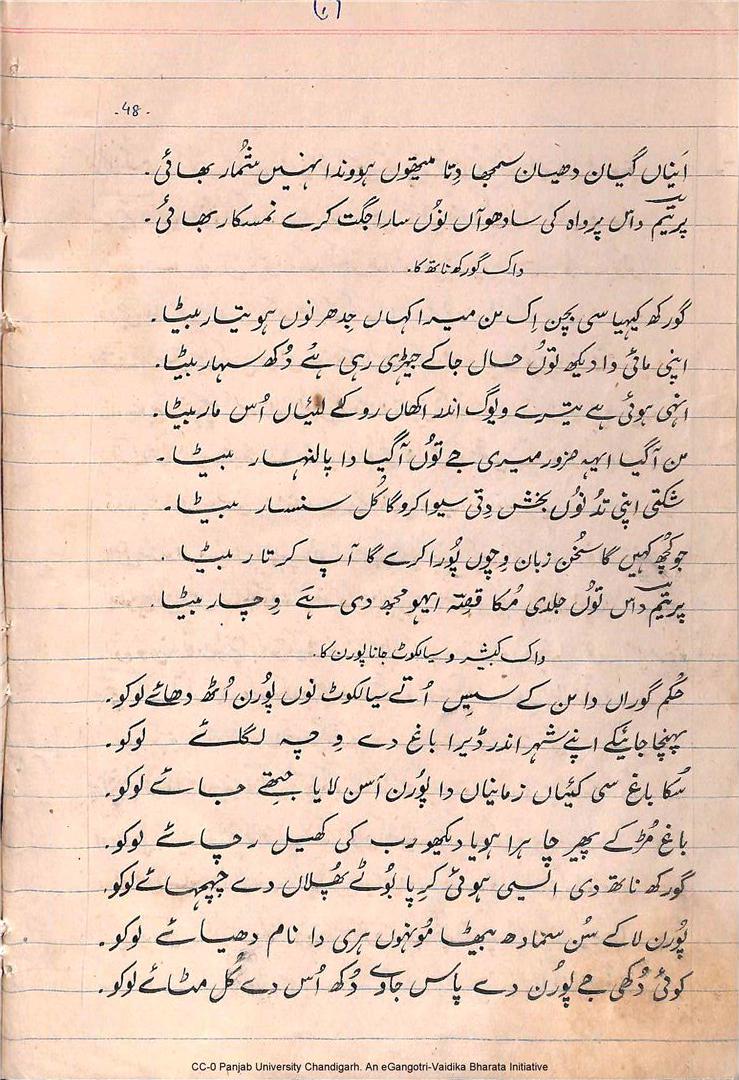 (۱)
-48-
اَیناں گیان دھیان سمجھا دِتا میتھوں ہووندا نہیں شُمار بھائی۔
پریتیم داس پرواہ کی سادھوآں نوُں سارا جگت کرے نمسکار بھائی۔
واک گورکھ ناتھ کا۔
گورکھ کیہیا سی بچن اِک من میرا کہاں جِدھر نوں ہو تیار بیٹا۔
اپنی مائی دا دیکھ توُں حال جاکے جیہڑی رہی ہے دُکھ سہار بیٹا۔
انہی ہوئی ہے تیرے ویوگ اندر اکھاں رو کے لئیاں اُس مار بیٹا۔
من آگیا ایہہ ضرور میری جے توُں آگیا دا پالنہار بیٹا۔
شکتی اپنی تدُ نوُں بخش دِتی سیوا کروگا کُل سنسار بیٹا۔
جو کُچھ کہیں گا سُخن زبان وچوں پوُرا کرے گا آپ کرتار بیٹا۔
پریتیم داس توُں جلدی مُکا قصّہ ایہو مجھ دی ہَے وِچار بیٹا۔
واک کبیشر و سیالکوٹ جانا پورن کا۔
حُکم گوراں دا من کے سیِس اُتے سیالکوٹ نوں پوُرن اُٹھ دھائے لوکو۔
پہنچا جائیکے اپنے شہر اندر ڈیرا باغ دے وچہ لگائے لوکو۔
سُکا باغ سی کئیاں زمانیاں دا پوُرن آسن لایا جِتھے جائے لوکو۔
باغ مُڑ کے پھیر جا ہرا ہویا دیکھو رب کی کھیل رچائے لوکو۔
گورکھ ناتھ دی ائسی ہوئی کرِپا بوُٹے پھُلاں دے چہمہائے لوکو۔
پوُرن لا کے سُن سمادھ بیٹھا موُنہوں ہری دا نام دھیائے لوکو۔
کوئی دُکھی جے پوُرن دے پاس جاوے دُکھ اُس دے کُل مٹائے لوکو۔
CC-0 Panjab University Chandigarh. An eGangotri-Vaidika Bharata Initiative